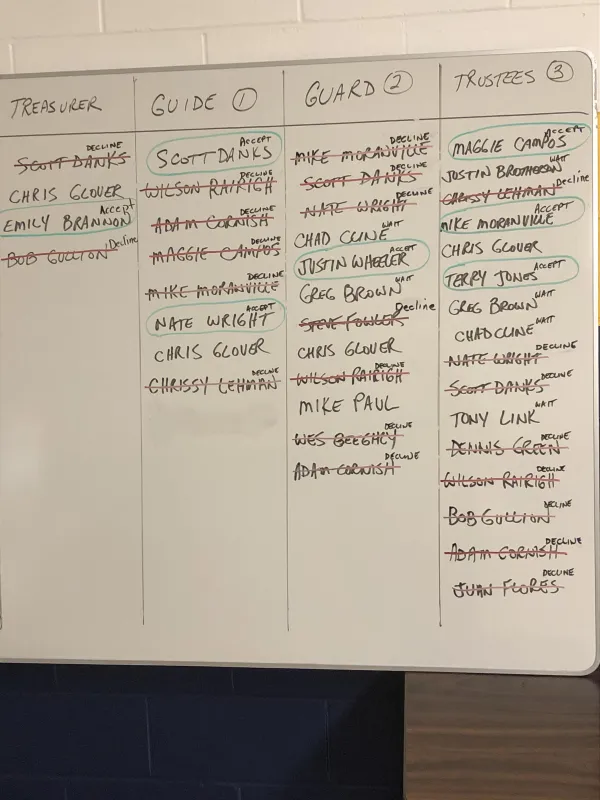 TREASURER
SCOTT DANKS DECLINE
CHRIS GLOVER
EMILY BRANNON Accept
BOB GULLION Decline
GUIDE 1
SCOTT DANKS ACCEPT
WILSON RAIRIGH DECLINE
ADAM CORNISH DECLINE
MAGGIE CAMPOS DECLINE
MIKE MORANVILLE DECLINE
NATE WRIGHT ACCEPT
CHRIS GLOVER
CHRISSY LEHMAN DECLINE
GUARD 2
MIKE MORANVILLE DECLINE
SCOTT DANKS DECLINE
NATE WRIGHT DECLINE
CHAD CLINE WAIT
JUSTIN WHEELER ACCEPT
GREG BROWN WAIT
STEVE FOWLER Decline
CHRIS GLOVER
WILSON RAIRIGH DECLINE
MIKE PAUL
WES BEEGHLY DECLINE
ADAM CORNISH DECLINE
TRUSTEES 3
MAGGIE CAMPOS ACCEPT
JUSTIN BROTHERSON WAIT
CHRISSY LEHMAN Decline
MIKE MORANVILLE ACCEPT
CHRIS GLOVER
TERRY JONES ACCEPT
GREG BROWN WAIT
CHAD CLINE WAIT
NATE WRIGHT DECLINE
SCOTT DANKS DECLINE
TONY LINK WAIT
DENNIS GREEN DECLINE
WILSON RAIRIGH DECLINE
BOB GULLION DECLINE
ADAM CORNISH DECLINE
JUAN FLORES DECLINE